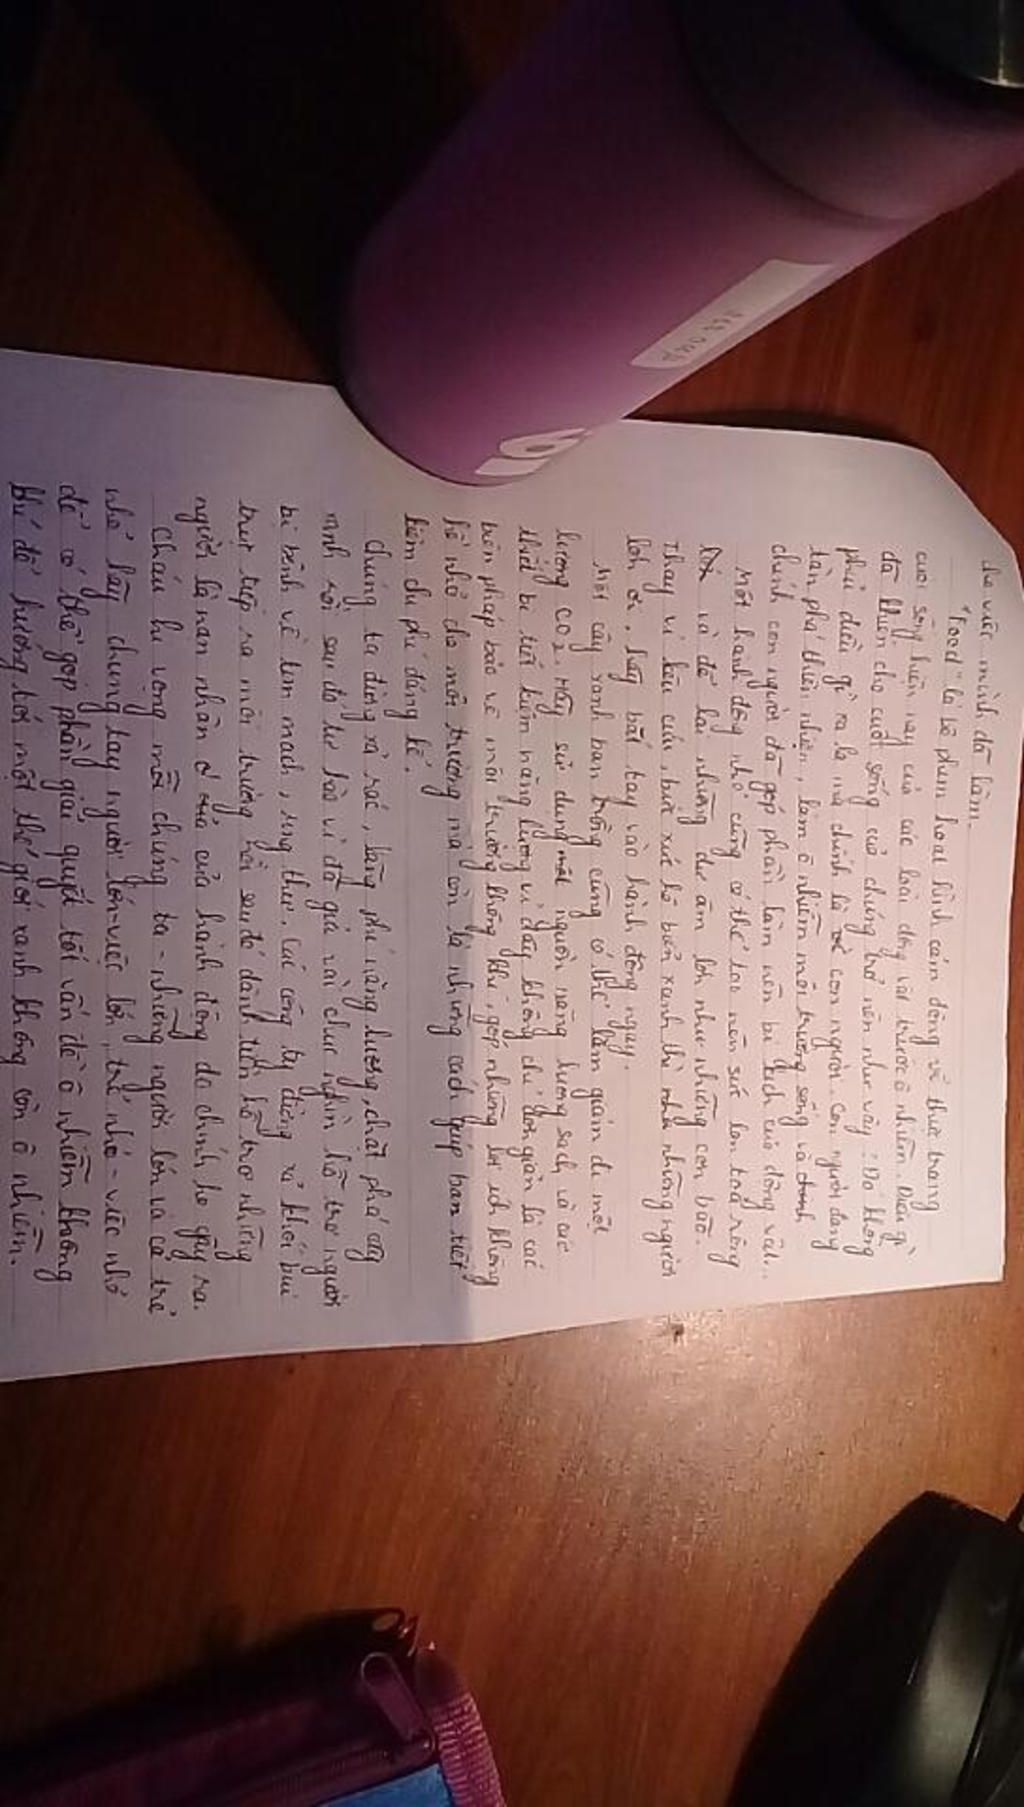 cho việc mình đã làm.
"Food" là bộ phim hoạt hình cảm động về thực trạng
cuộc sống hiện nay của các loài động vật trước ô nhiễm. Điều gì
đã khiến cho cuộc sống của chúng trở nên như vậy? Đó không
phải điều gì xa lạ mà chính là con người. Con người đang
tàn phá thiên nhiên, làm ô nhiễm môi trường sống và
chính con người đã góp phần làm nên bi kịch của động vật..
Một hành động nhỏ cũng có thể tạo nên sức lan toả rộng
và để lại những dư âm lớn như những cơn bão.
Thay vì kêu cứu, bức xúc hô biến xanh thì những người
lớn ơi, hãy bắt tay vào hành động ngay.
Một cây xanh bạn trồng cũng có thể làm giảm đi một
lượng CO2. Hãy sử dụng nguồn năng lượng sạch và các
thiết bị tiết kiệm năng lượng vì đây không chỉ đơn giản là các
biện pháp bảo vệ môi trường không khí, góp những lợi ích không
hề nhỏ cho môi trường mà còn là những cách giúp bạn tiết
kiệm chi phí đáng kể.
Chúng ta đừng xả rác, lãng phí năng lượng, chặt phá cây
xanh rồi sau đó tự hào vì đã giải vài chục nghìn hỗ trợ người
bị bệnh về tim mạch, ung thư. Các công ty đừng xả khói bụi
trực tiếp ra môi trường rồi sau đó dành tiền hỗ trợ những
người là nạn nhân của hành động do chính họ gây ra.
Cháu hi vọng mỗi chúng ta - những người lớn và cả trẻ
nhỏ hãy chung tay người lớn - việc lớn, trẻ nhỏ - việc nhỏ
để có thể góp phần giải quyết tốt vấn đề ô nhiễm không
khí để hướng tới một thế giới xanh không còn ô nhiễm.